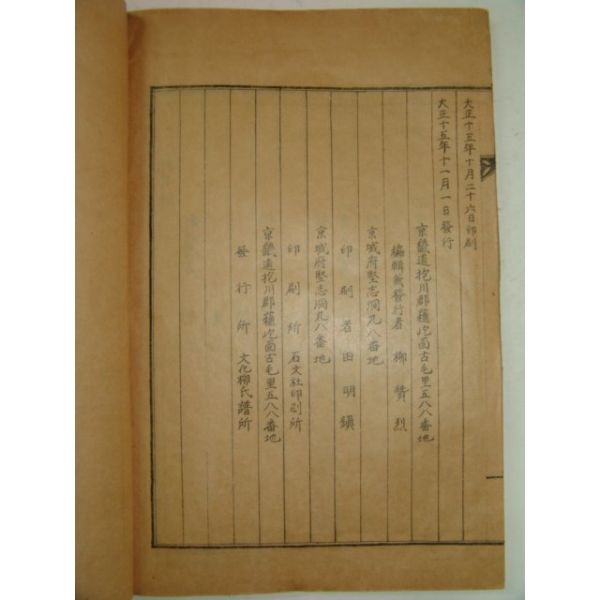 大正十五年十月二十六日印刷
大正十五年十一月一日發行
京畿道抱川郡蘇屹面古毛里五八八番地
編輯兼發行者 柳贊烈
京城府堅志洞凡八番地
印刷者 田明鎭
京城府堅志洞凡八番地
印刷所 石文社印刷所
京畿道抱川郡蘇屹面古毛里五八八番地
發行所 文化柳氏譜所